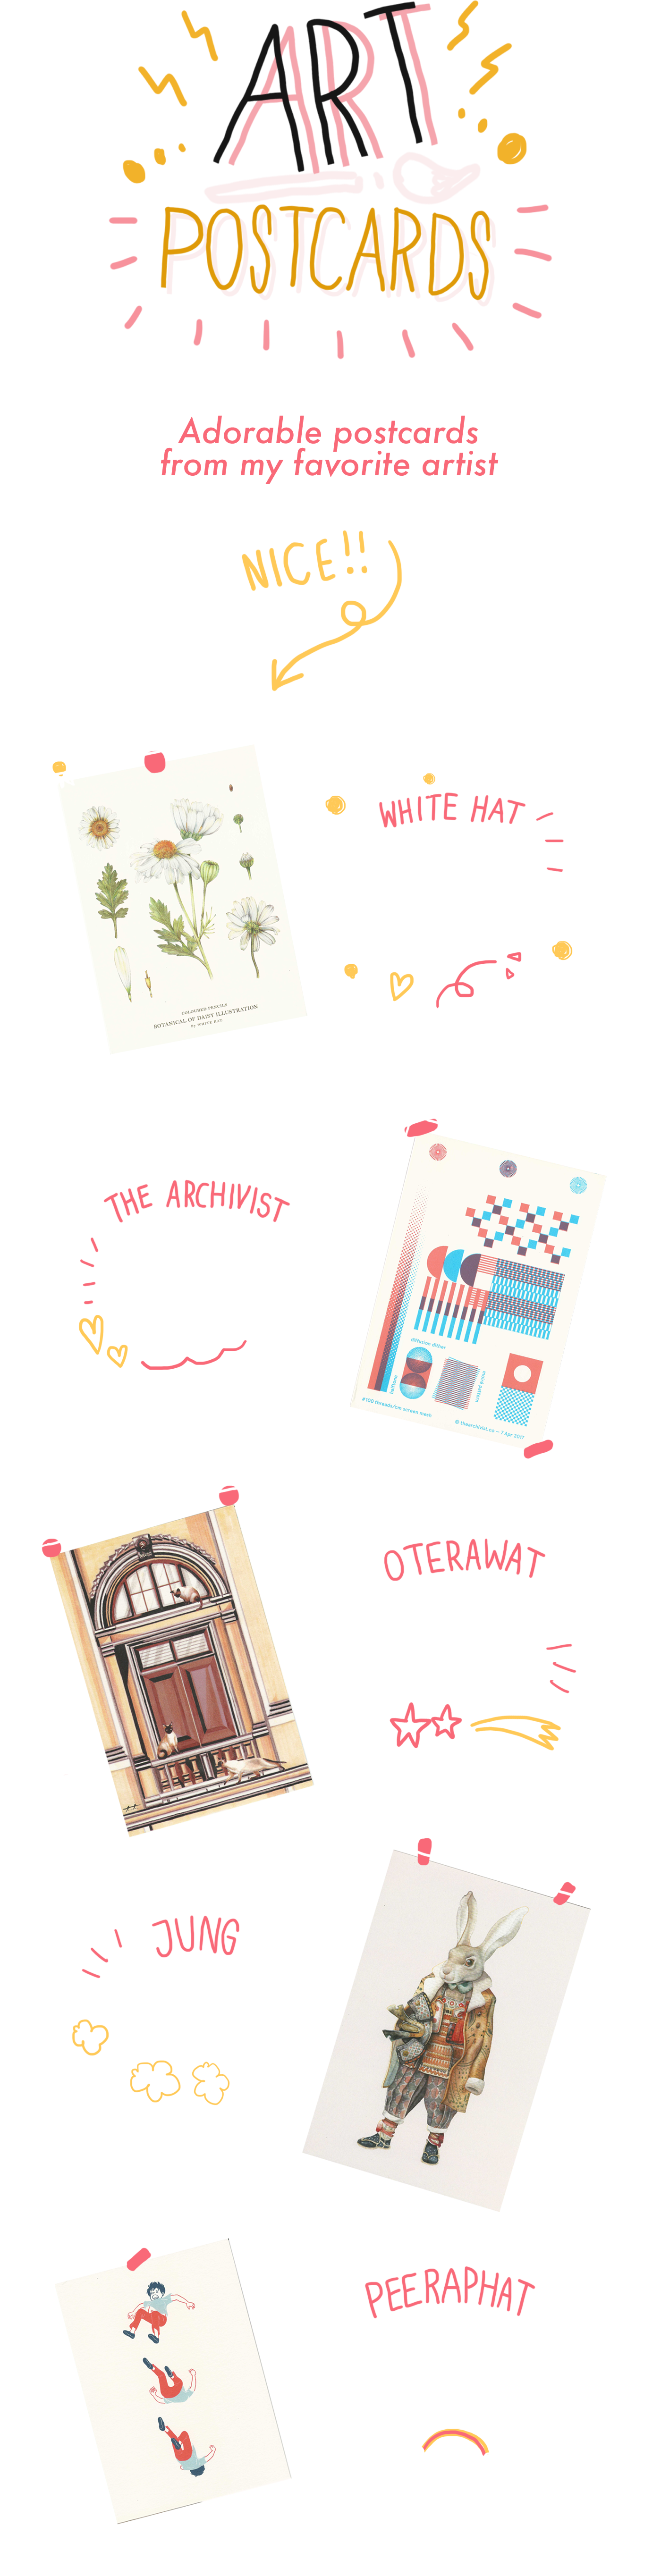 ART
POSTCARDS
Adorable postcards
from my favorite artist
NICE!!
WHITE HAT
COLOURED PENCILS
BOTANICAL OF DAISY ILLUSTRATION
By WHITE HAT
THE ARCHIVIST
diffusion dither
halftone
moiré pattern
#100 threads/cm screen mesh
© thearchivist.co – 7 Apr 2017
OTERAWAT
JUNG
PEERAPHAT